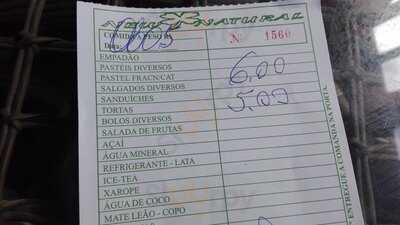 NATURAL
COMIDA A PESO
Data:
N 1560
EMPADÃO
PASTÉIS DIVERSOS 6,00
PASTEL FRACN/CAT
SALGADOS DIVERSOS 5,00
SANDUÍCHES
TORTAS
BOLOS DIVERSOS
SALADA DE FRUTAS
AÇAÍ
ÁGUA MINERAL
REFRIGERANTE - LATA
ICE-TEA
XAROPE
ÁGUA DE COCO
MATE LEÃO - COPO
ENTREGUE A COMANDA NA PORTA